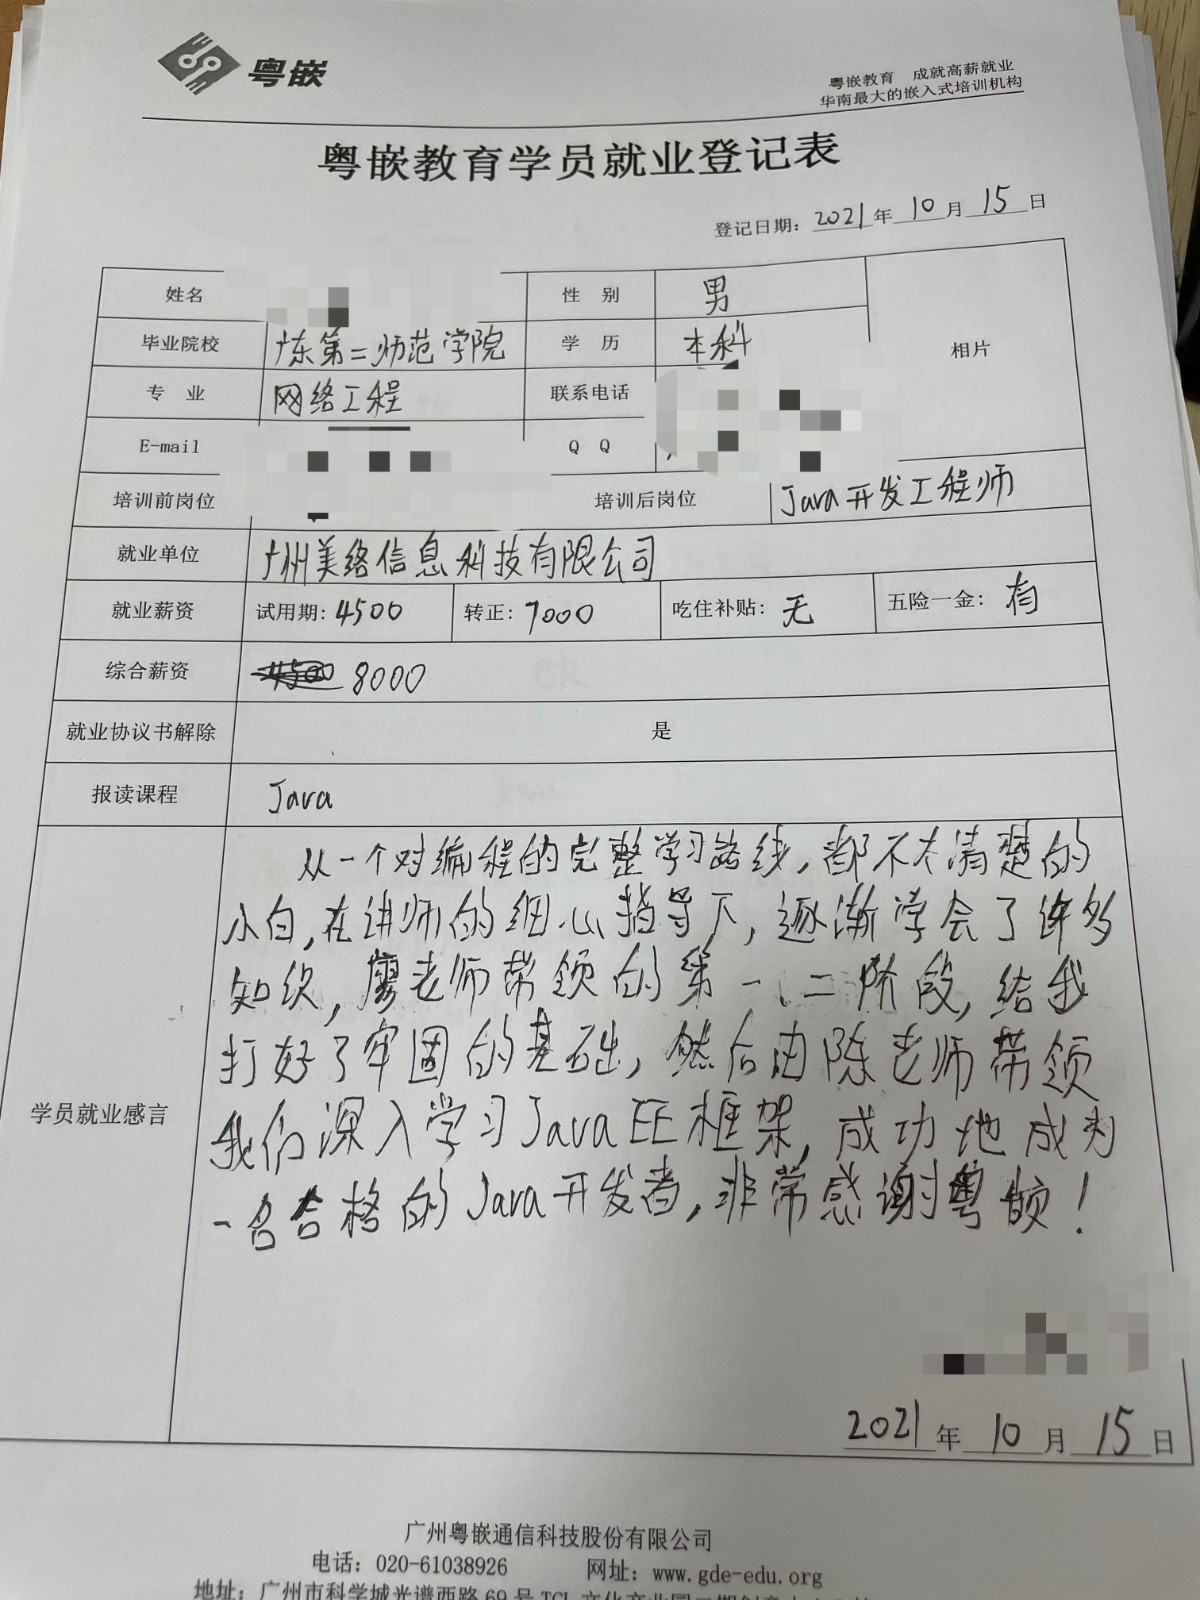 粤嵌
粤嵌教育 成就高薪就业
华南最大的嵌入式培训机构
粤嵌教育学员就业登记表
登记日期：2021年10月15日
姓名 性 别 男
相片
毕业院校 广东第二师范学院 学 历 本科
专 业 网络工程 联系电话
E-mail Q Q
培训前岗位 培训后岗位 Java开发工程师
就业单位 广州美络信息科技有限公司
就业薪资 试用期：4500 转正：7000 吃住补贴：无 五险一金：有
综合薪资 8000
就业协议书解除 是
报读课程 Java
学员就业感言
从一个对编程的完整学习路线，都不太清楚的
小白，在讲师的细心指导下，逐渐学会了许多
知识，廖老师带领的第一、二阶段，给我
打好了牢固的基础，然后由陈老师带领
我们深入学习JavaEE框架，成功地成为
一名合格的Java开发者，非常感谢粤嵌！
2021年10月15日
广州粤嵌通信科技股份有限公司
电话：020-61038926 网址：www.gde-edu.org
地址：广州市科学城光谱西路69号TCL文化产业园二期创意中心